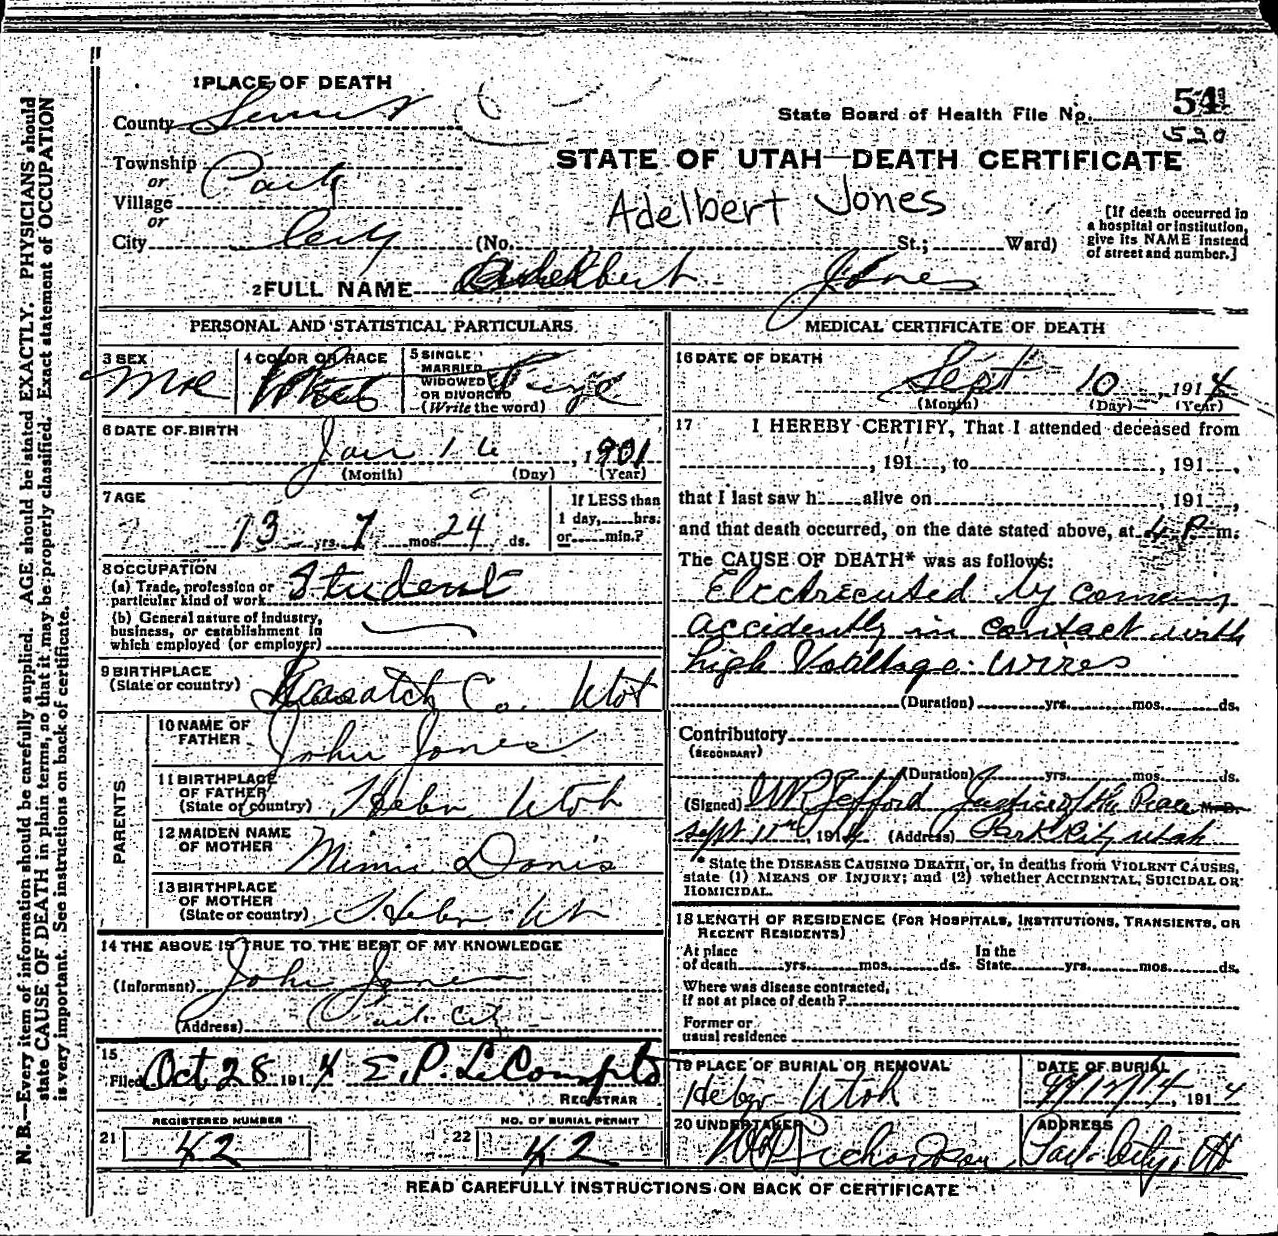 N. B.—Every item of information should be carefully supplied. AGE should be stated EXACTLY. PHYSICIANS should
state CAUSE OF DEATH in plain terms, so that it may be properly classified. Exact statement of OCCUPATION
is very important. See instructions on back of certificate.
1 PLACE OF DEATH
County Summit
Township
or
Village Park
or
City City (No. St.; Ward)
State Board of Health File No. 54
530
STATE OF UTAH—DEATH CERTIFICATE
Adelbert Jones
[If death occurred in
a hospital or institution,
give its NAME instead
of street and number.]
2 FULL NAME Adelbert Jones
PERSONAL AND STATISTICAL PARTICULARS
3 SEX
4 COLOR OR RACE
5 SINGLE
MARRIED
WIDOWED
OR DIVORCED
(Write the word)
White
6 DATE OF BIRTH
Jan 16, 1901
(Month) (Day) (Year)
7 AGE
13 yrs. 7 mos. 24 ds.
If LESS than
1 day, hrs.
or min.?
8 OCCUPATION
(a) Trade, profession or
particular kind of work Student
(b) General nature of industry,
business, or establishment in
which employed (or employer)
9 BIRTHPLACE
(State or country) Wasatch Co. Utah
PARENTS
10 NAME OF
FATHER John Jones
11 BIRTHPLACE
OF FATHER
(State or country) Heber Utah
12 MAIDEN NAME
OF MOTHER
13 BIRTHPLACE
OF MOTHER
(State or country) Heber Ut
14 THE ABOVE IS TRUE TO THE BEST OF MY KNOWLEDGE
(Informant) John Jones
(Address) Park City
15
Filed Oct 28 1914 E. P. LeCompte
REGISTRAR
REGISTERED NUMBER
21 42
NO. OF BURIAL PERMIT
22 42
MEDICAL CERTIFICATE OF DEATH
16 DATE OF DEATH
Sept 10, 1914
(Month) (Day) (Year)
17 I HEREBY CERTIFY, That I attended deceased from
, 191 , to , 191 ,
that I last saw h alive on , 191 ,
and that death occurred, on the date stated above, at 4 P. m.
The CAUSE OF DEATH* was as follows:
Electrecuted by coming
accidently in contact with
high Voaltage wires
(Duration) yrs. mos. ds.
Contributory
(SECONDARY)
(Duration) yrs. mos. ds.
(Signed) Justice of the Peace M. D.
Sept 11th, 1914 (Address) Park City Utah
* State the DISEASE CAUSING DEATH, or, in deaths from VIOLENT CAUSES,
state (1) MEANS OF INJURY; and (2) whether ACCIDENTAL, SUICIDAL OR
HOMICIDAL.
18 LENGTH OF RESIDENCE (FOR HOSPITALS, INSTITUTIONS, TRANSIENTS, OR
RECENT RESIDENTS)
At place
of death yrs. mos. ds.
In the
State yrs. mos. ds.
Where was disease contracted,
if not at place of death?
Former or
usual residence
19 PLACE OF BURIAL OR REMOVAL
Heber Utah
DATE OF BURIAL
9/12/14, 1914
20 UNDERTAKER
Richardson
ADDRESS
Park City, Ut
READ CAREFULLY INSTRUCTIONS ON BACK OF CERTIFICATE